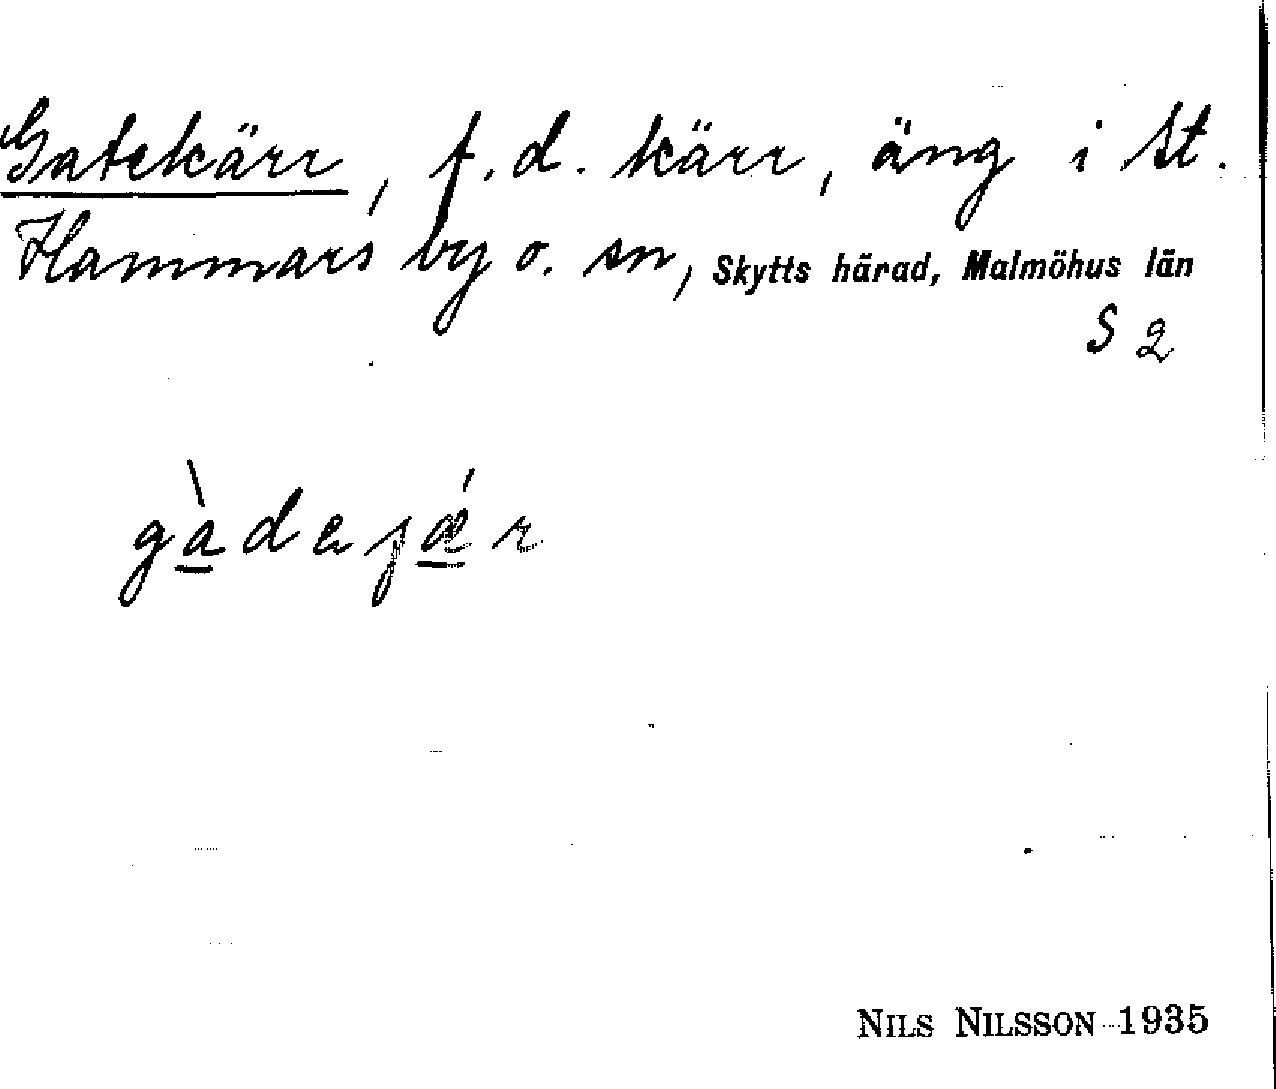 Gatekärr, f.d. kärr, äng i St.
Hammars by o. sn, Skytts härad, Malmöhus län
S 2
gàdejǽr
NILS NILSSON 1935